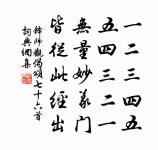 一二三四五
五四三二一
無量妙義門
皆從此經出
釋師觀偈頌七十六首
詞典網集